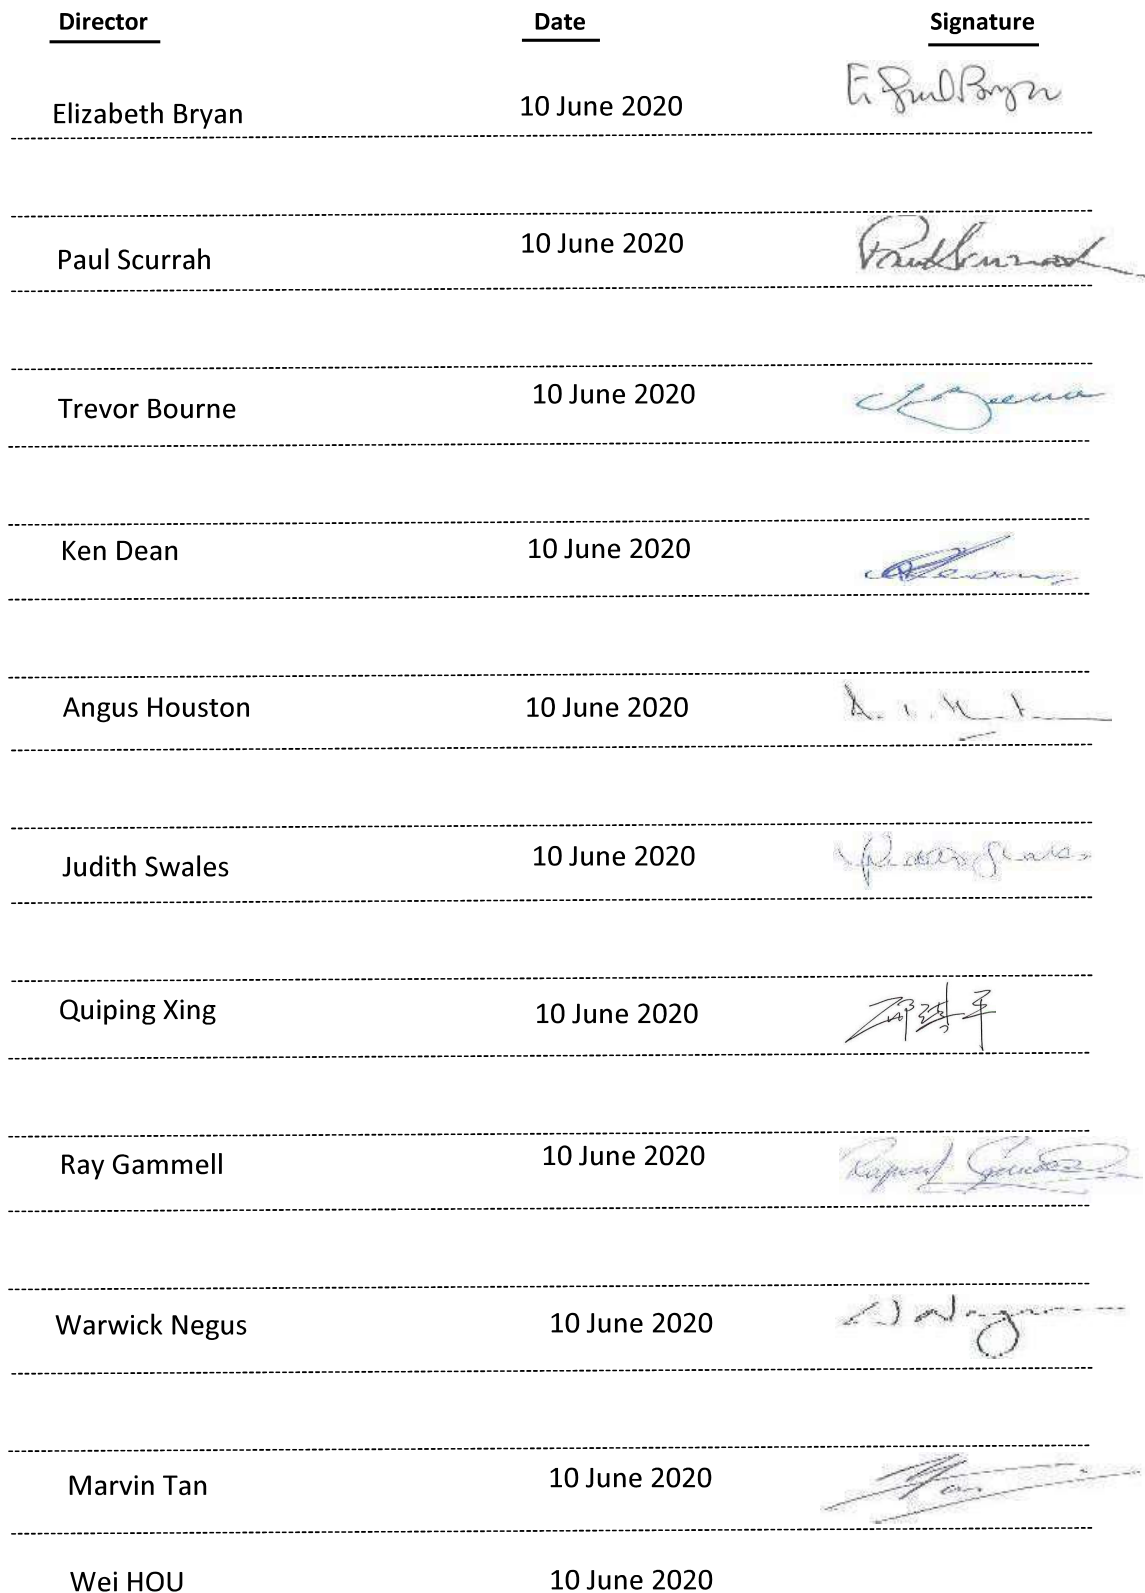 Director Date Signature
Elizabeth Bryan 10 June 2020
Paul Scurrah 10 June 2020 Paul Scurrah
Trevor Bourne 10 June 2020
Ken Dean 10 June 2020
Angus Houston 10 June 2020
Judith Swales 10 June 2020
Quiping Xing 10 June 2020
Ray Gammell 10 June 2020
Warwick Negus 10 June 2020 W Negus
Marvin Tan 10 June 2020
Wei HOU 10 June 2020